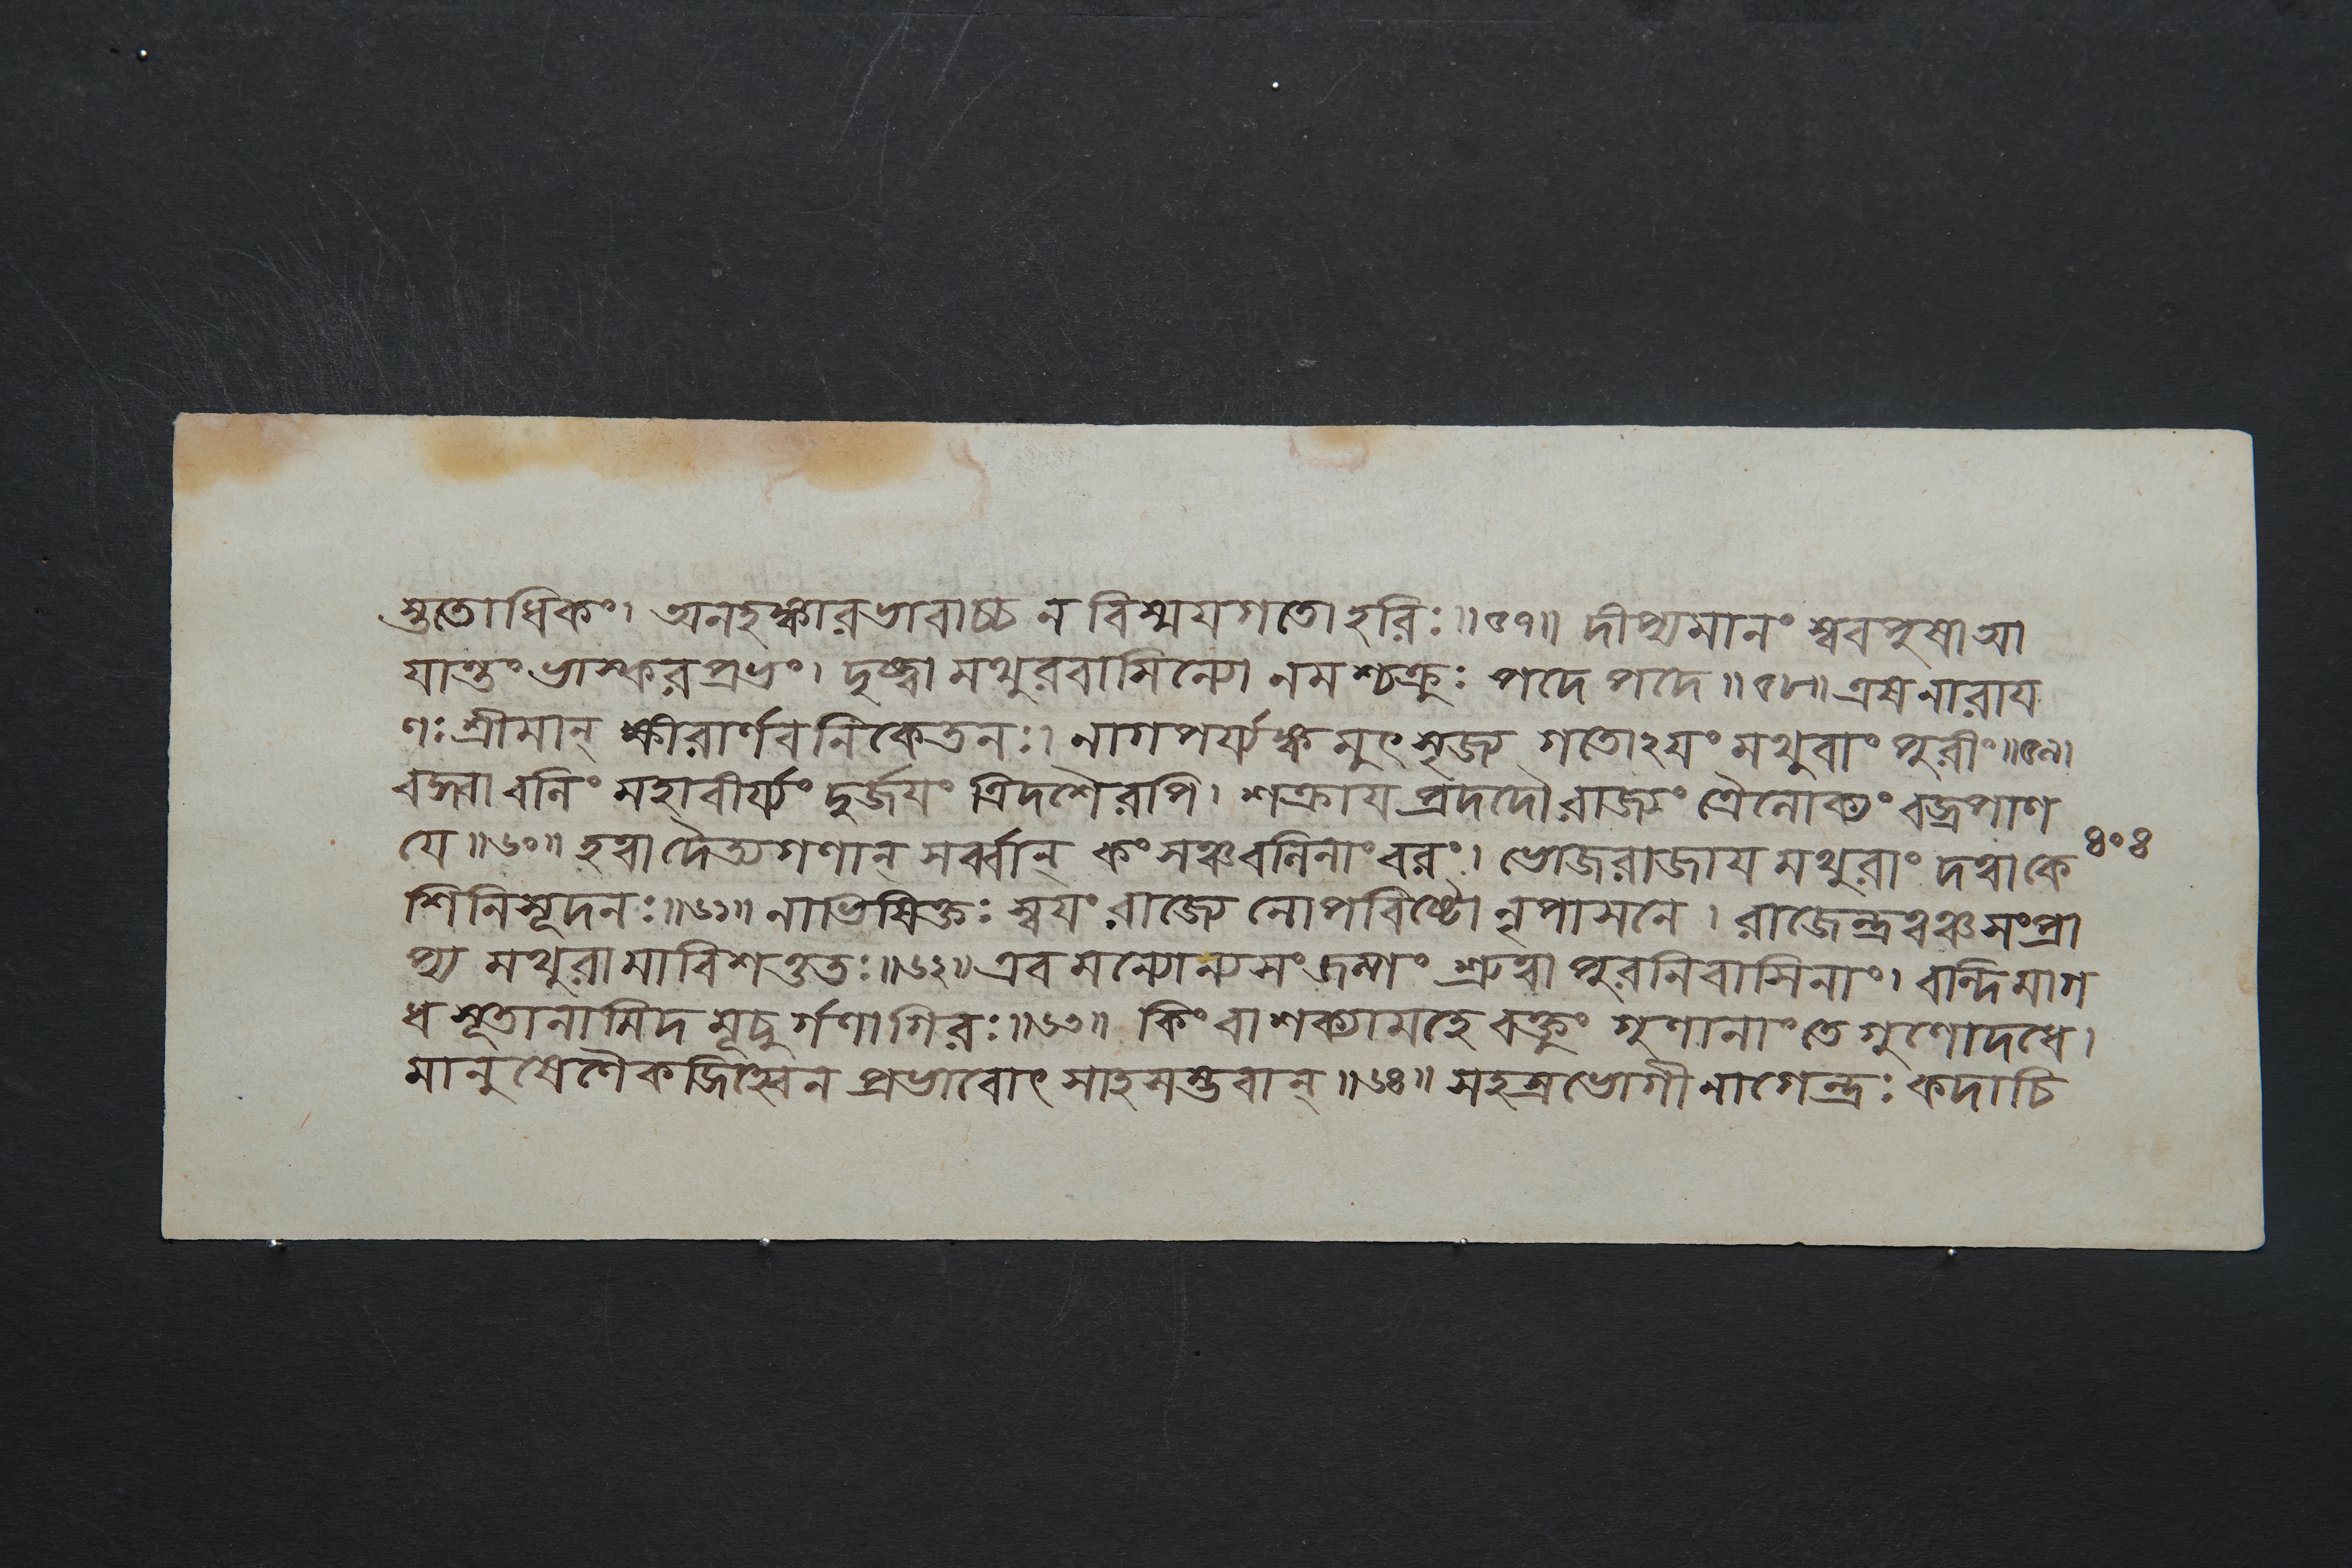 স্তুতোধিকং। অনহঙ্কারভাবাচ্চ ন বিস্ময়গতো হরিঃ॥৫৭॥ দীপ্যমানং স্ববপুষা আ
যান্তং ভাস্করপ্রভং। দৃষ্ট্বা মথুরবাসিন্যো নমশ্চক্রুঃ পদে পদে॥৫৮॥ এষ নারায
ণঃ শ্রীমান্ ক্ষীরার্ণবনিকেতনঃ। নাগপর্য্যঙ্কমুৎসৃজ্য গতোঽযং মথুরাং পুরীং॥৫৯।
বদ্ধ্বা বলিং মহাবীর্য্যং দুর্জযং ত্রিদশৈরপি। শক্রায প্রদদৌ রাজ্যং ত্রৈলোক্যং বজ্রপাণ
যে॥৬০॥ হত্বা দৈত্যগণান্ সর্ব্বান্ কংসঞ্চ বলিনাং বরং। ভোজরাজায মথুরাং দত্বা কে
শিনিসূদনঃ॥৬১॥ নাভিষিক্তঃ স্বযং রাজ্যে নোপবিষ্টো নৃপাসনে। রাজেন্দ্রত্বঞ্চ সংপ্রা
প্য মথুরামাবিশত্ততঃ॥৬২॥ এবমন্যোন্যসংজল্পং শ্রুত্বা পুরনিবাসিনাং। বন্দিমাগ
ধসূতানামিদমূচুর্গণা গিরঃ॥৬৩॥ কিং বা শক্যামহে বক্তুং গুণানাং তে গুণোদধে।
মানুষেণৈকজিহ্বেন প্রভাবোৎসাহসম্ভবান্॥৬৪॥ সহস্রভোগী নাগেন্দ্রঃ কদাচি
৪০৪